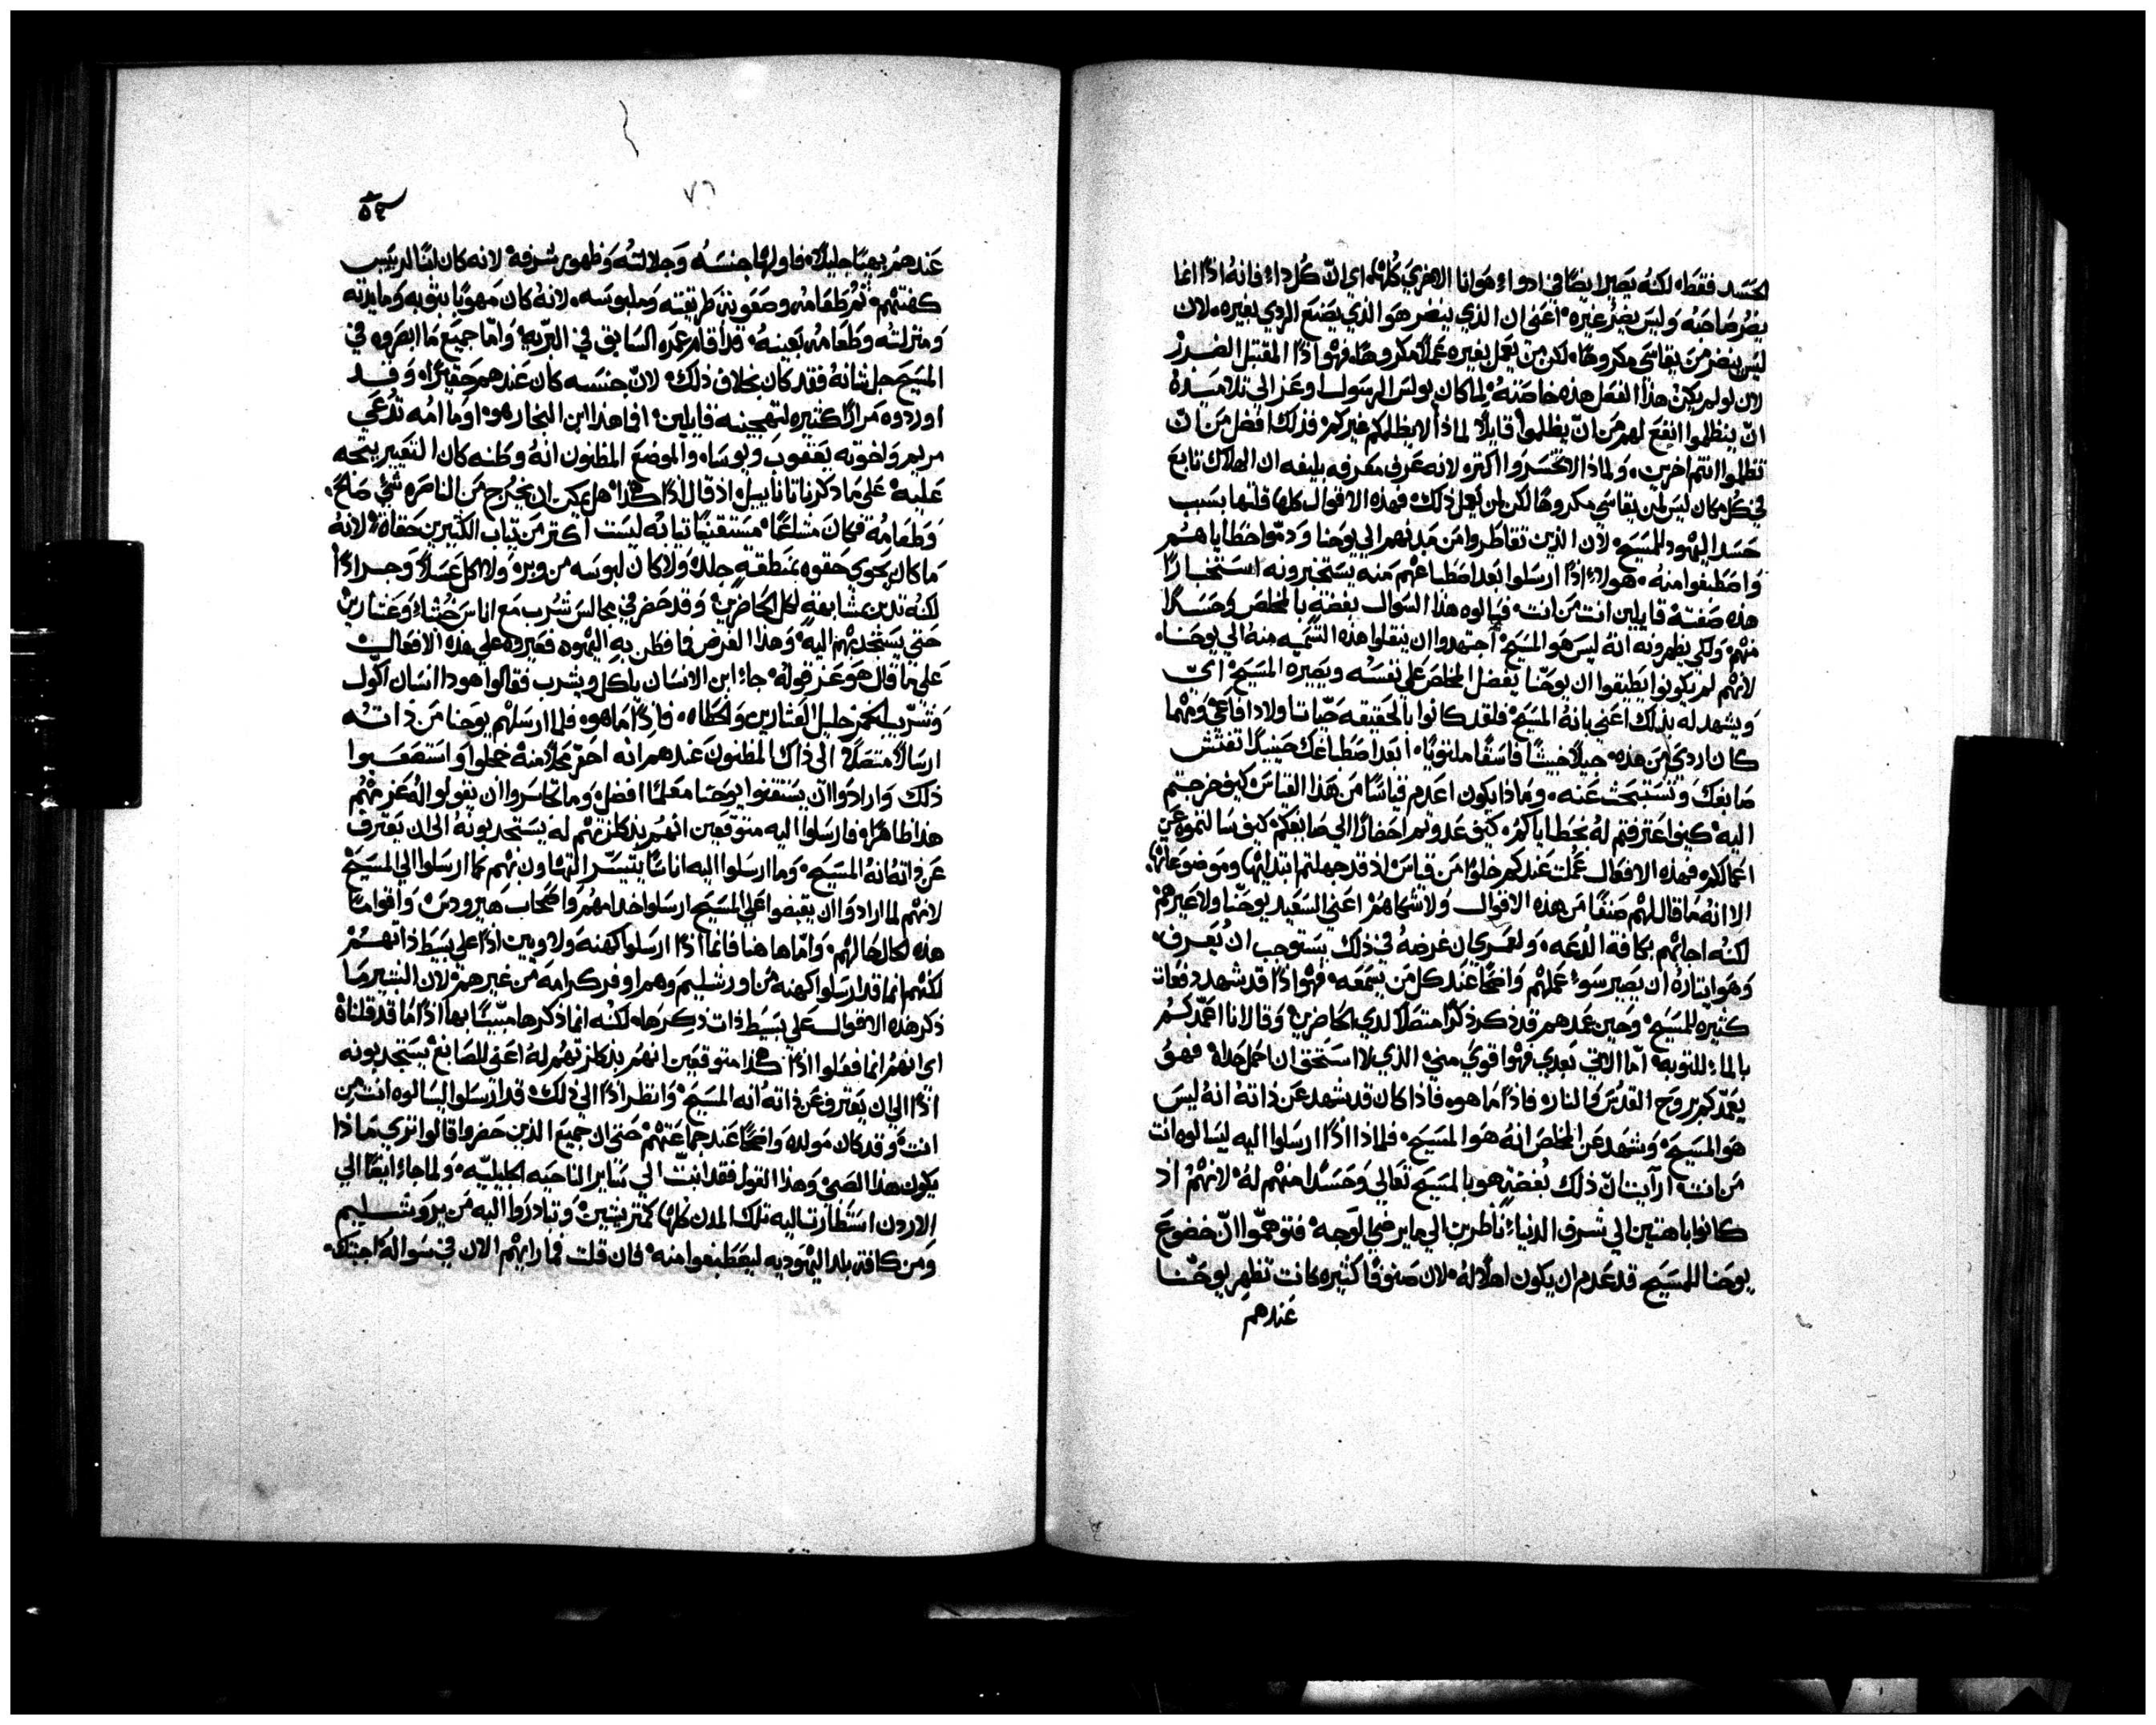 الحسد فقط. لكنه يصير ايضًا في ادواء هوانا الاخرى كلها. اي انّ كل داء فانه اذًا انما
يضر صاحبه وليس يضر غيره. اعني ان الذي ينضر هو الذي يصنع الردي بغيره. لان
ليس ينضر من يقاسي مكروهًا. لكن من يعمل بغيره عملاً مكروهًا. فهو اذًا المقتبل الضرر
لان لو لم يكن هذا الفعل هذه خاصته لما كان بولس الرسول وعز الى تلاميذه
انّ ينظلموا انفع لهم من انّ يظلموا قايلاً لماذا لا يظلمكم غيركم فذلك افضل من ان
تظلموا انتم اخرين. ولماذا لا تخسروا اكثر. لانه عرف معرفه بليغه ان الهلاك تابع
في كل مكان ليس لمن يقاسي مكروهًا لكن لمن يعمل ذلك. فهذه الاقوال كلها قلتها بسبب
حسد اليهود للمسيح. لان الذين تقاطروا من مدنهم الى يوحنا وذمّوا خطاياهم
واصطبغوا منه. هولاء اذًا ارسلوا بعد اصطباغهم منه يستخبرونه استخبارًا
هذه صفته قايلين انت من انت. فسالوه هذا السوال بغضةً بالمخلص وحسدًا
منهم. ولكي يظهرونه انه ليس هو المسيح اجتهدوا ان ينقلوا هذه التسميه منه الى يوحنا.
لانهم لم يكونوا يطيقوا ان يوحنّا يفضل المخلص على نفسه ويصيره المسيح اي
ويشهد له بذلك اعني بانه المسيح فلقد كانوا بالحقيقه حيّاتا ولاد افاعي ومهما
كان اردي من هذه. جيلاً خبيثًا فاسقًا ملتويًا. ابعد اصطباغك حينيذًا تفتش
صابغك وتستبحث عنه. وماذا يكون اعدم قياسًا من هذا القياس كيف خرجتم
اليه كيف اعترفتم له بخطاياكم. كيف عدوتم احضارًا الى صابغكم كيف سالتموه عن
اعمالكم. فهذه الافعال عُملت عندكم خلوًا من قياس اذ قد جهلتم ابتدايها وموضوعاتها.
الا انه ما قال لهم صنفًا من هذه الاقوال ولا شكاهم اعني السعيد يوحنّا ولا عيرهم
لكنه اجابهم بكافة الدعه. ولعمري ان غرضه في ذلك يستوجب ان يُعرف.
وهو ايثاره ان يصير سوء عملهم واضحًا عند كل من يسمعه. فهو اذًا قد شهد دفعات
كثيره للمسيح. وحين عمدهم قد ذكر ذكرًا متصلاً لدي الحاضرين وقال انا اعمّدكم
بالماء للتوبه. امّا الاتي بعدي فهو اقوي مني الذي لا استحق ان احمل حذاه فهو
يعمّدكم بروح القدس والنار. فاذًا ما هو. فاذا كان قد شهد عن ذاته انه ليس
هو المسيح. وشهد عن المخلص انه هو المسيح. فلماذا اذًا ارسلوا اليه ليسالوه انت
من انت. ارآيت انّ ذلك بُغضةٍ هو بالمسيح تعالى وحسدًا منهم له. لانهم اذ
كانوا باهتين الى شرف الدنيا. ناظرين الى ما يرضي الوجه. فتوهّموا انّ خضوع
يوحنا للمسيح قد عدم ان يكون اهلاً له. لان صنوفًا كثيره كانت تظهر يوحنّا
عندهم
٧٦
عندهم بهيًا جليلاً. فاولها جنسه وجلالته وظهور شرفه لانه كان ابنًا لرييس
كهنتهم. ثم طعامه وصعوبة طريقته وملبوسه. لانه كان متهونًا بثوبه ومايدته
ومنزلته وطعامه بعينه. قد اقام عمره السابق في البريه. وامّا جميع ما ابصروه في
المسيح جل شانه فقد كان بخلاف ذلك. لانّ جنسه كان عندهم حقيرًا. وقد
اوردوه مرارًا كثيره لتهجينه قايلين افما هذا ابن النجار هو. اوما امه تُدعي
مريم واخوته يعقوب ويوسا. والموضع المظنون انه وطنه كان التعيير يتجه
عليه. على ما ذكر ناتاناييل اذ قال اذًا هكذا هل يمكن ان يخرج من الناصره شي صالح.
وطعامه فكان مشاعًا مستقيمًا ثيابه ليست اكثر من ثياب الكثيرين حقاه. لانه
ما كان يحوي حقوه بمنطقةٍ جلد. ولا كان لبوسه من وبره ولا اكل عسلاً وجرادًا
لكنه تدبر بمشابهةٍ لكل الحاضرين. وقد حضر في مجالس شرب مع اناس خبثاء وعشارين
حتى يستجذبهم اليه. وهذا الغرض فما فطن به اليهود. فعيروه على هذه الافعال
على ما قال هو عز قوله. جاء ابن الانسان ياكل ويشرب فقالوا هوذا انسان اكول
وشرّيب الخمر. خليل العشارين والخطاه. فاذًا ما هو. فلما ارسلهم يوحنا من ذاته
ارسالاً متصلاً. الى ذاك المظنون عندهم انه احقر محلاً منه خجلوا واستصعبوا
ذلك. وارادوا ان يستقنوا يوحنا معلمًا افضل. وما تجاسروا ان يقولوا له غرضهم
هذا ظاهرًا. فارسلوا اليه متوقعين انهم بذلك كرامتهم له يستجذبونه الى ان يعترف
عن ذاته انه المسيح. وما ارسلوا اليه اناسًا يتيسّر التهاون بهم كما ارسلوا الى المسيح
لانهم لما ارادوا ان يقبضوا على المسيح ارسلوا خدامهم واصحاب هيرودس. واقوامًا
هذه الحال حالهم. وامّا هاهنا فانما اذًا ارسلوا كهنه ولاويين اذًا على بسيط ذاتهم
لكنهم انما قد ارسلوا كهنه من اورشليم وهم اوفر كرامه من غيرهم. لان البشير ما
ذكر هذه الاقوال على بسيط ذات ذكرها. لكنه انما ذكرها مبيّنًا بها اذًا ما قد قلناه
اي انهم انما فعلوا اذًا هكذا متوقعين انهم بذلك كرامتهم له اعني للصابغ يستجذبونه
اذًا الى ان يعترف عن ذاته انه المسيح. وانظر اذًا الى ذلك. قد ارسلوا ليسالوه انت من
انت. وقد كان مولده واضحًا عند جماعتهم حتى ان جميع الذين حضروا قالوا نرى ماذا
يكون هذا الصبي. وهذا القول فقد انبث الى ساير الناحيه الجبليّه. ولما جاء ايضًا الى
الاردن استطارت اليه تلك المدن كلها كمتريشين. وتبادروا اليه من يروشليم
ومن كافة بلد اليهوديه ليصطبغوا منه. فان قلت فما رايهم الان في سواله. اجبتك.